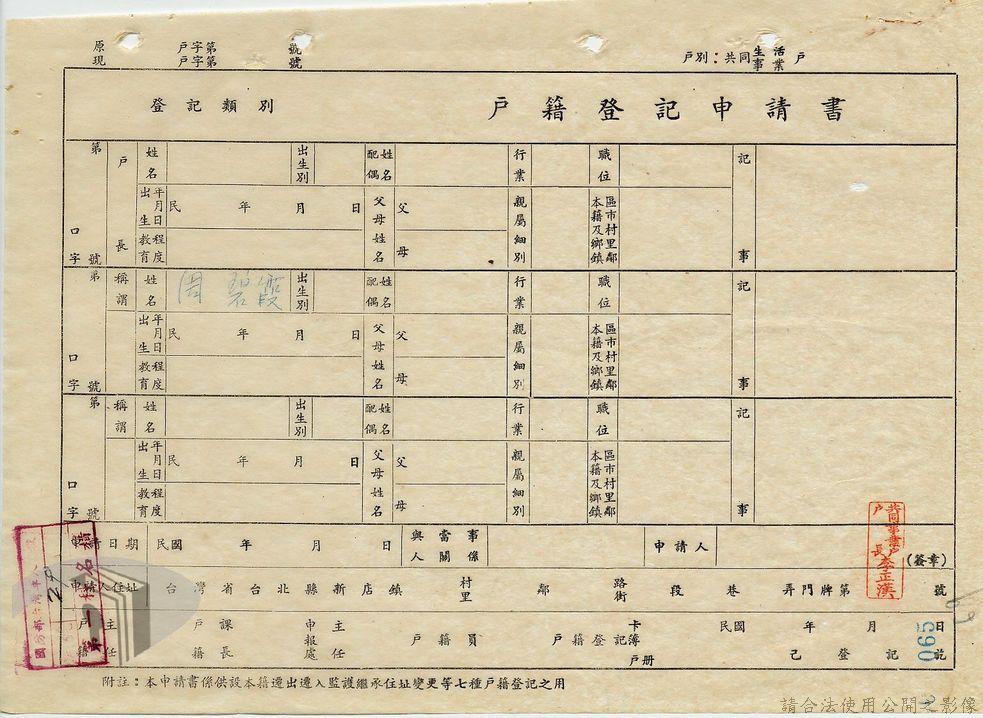 原 戶字第 號
現 戶字第 號
戶別：共同生活事業戶
登記類別 戶籍登記申請書
第 口字 號 戶長 姓名 出生別 配偶姓名 行業 職位 記事
出生年月日 民 年 月 日 父母姓名 父 母 親屬細別 本籍及鄉鎮區市村里鄰
教育程度
第 口字 號 稱謂 姓名 周碧霞 出生別 配偶姓名 行業 職位 記事
出生年月日 民 年 月 日 父母姓名 父 母 親屬細別 本籍及鄉鎮區市村里鄰
教育程度
第 口字 號 稱謂 姓名 出生別 配偶姓名 行業 職位 記事
出生年月日 民 年 月 日 父母姓名 父 母 親屬細別 本籍及鄉鎮區市村里鄰
教育程度
申請日期 民國 年 月 日 與當事人關係 申請人 (簽章)
共同事業戶
戶長李正漢
申請人住址 台灣省台北縣新店鎮 村里 鄰 路街 段 巷 弄門牌第 號
戶籍主任 戶籍課長 申報處主任 戶籍員 戶籍登記卡簿戶册 民國 年 月 日 己登記訖
065
附註：本申請書係供設本籍遷出遷入監護繼承住址變更等七種戶籍登記之用
請合法使用公開之影像